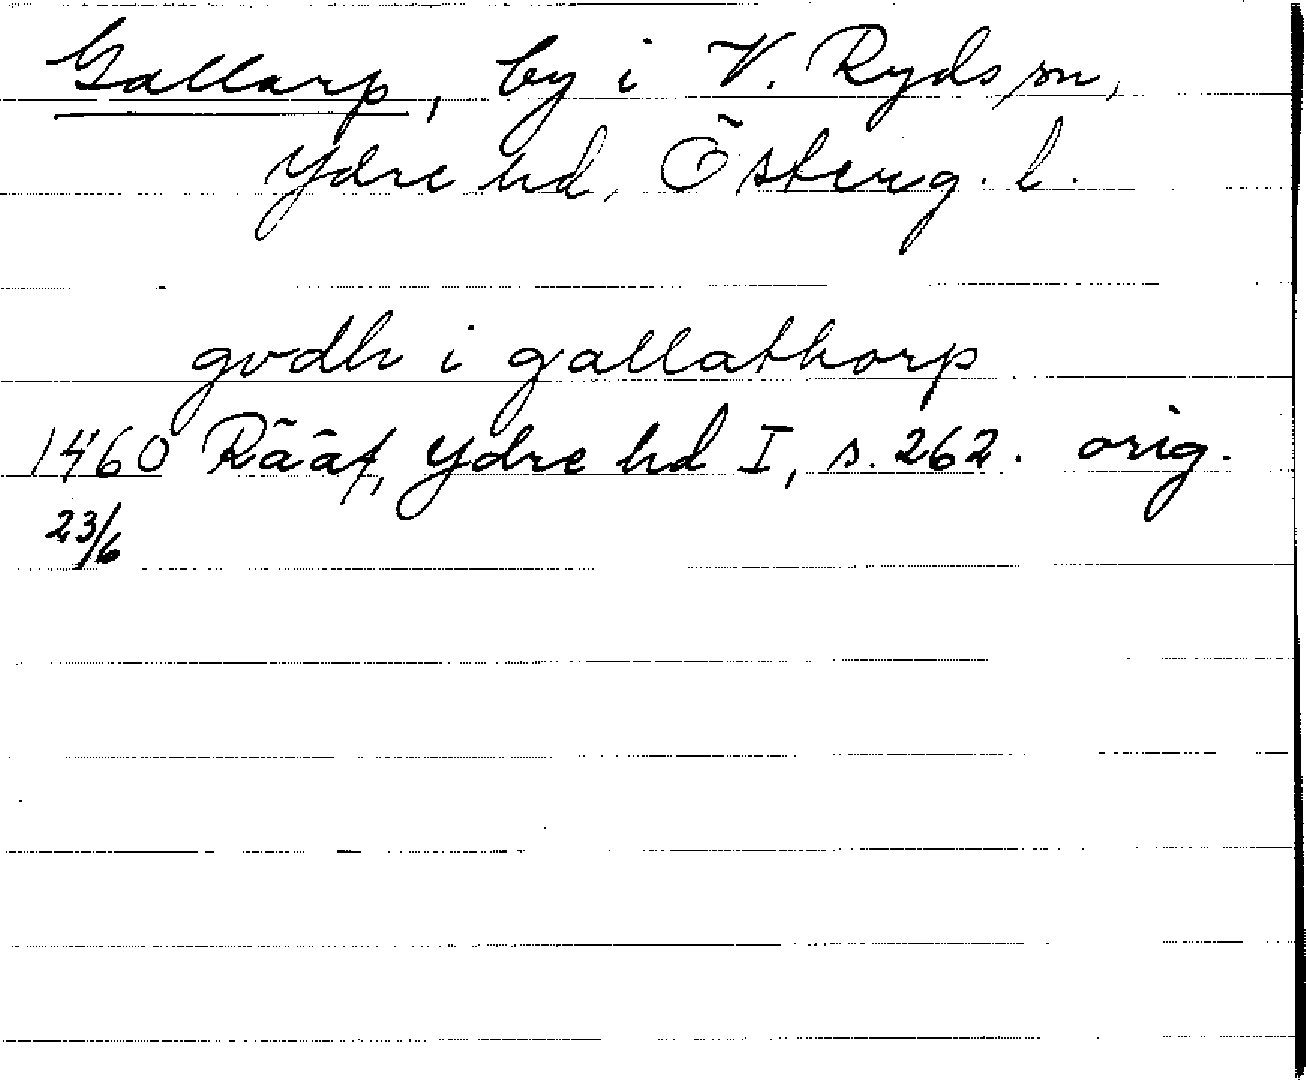 Gallarp, by i V. Ryds sn,
Ydre hd, Österg. l.
godh i gallathorp
1460 Rääf, Ydre hd I, s. 262. orig.
23/6